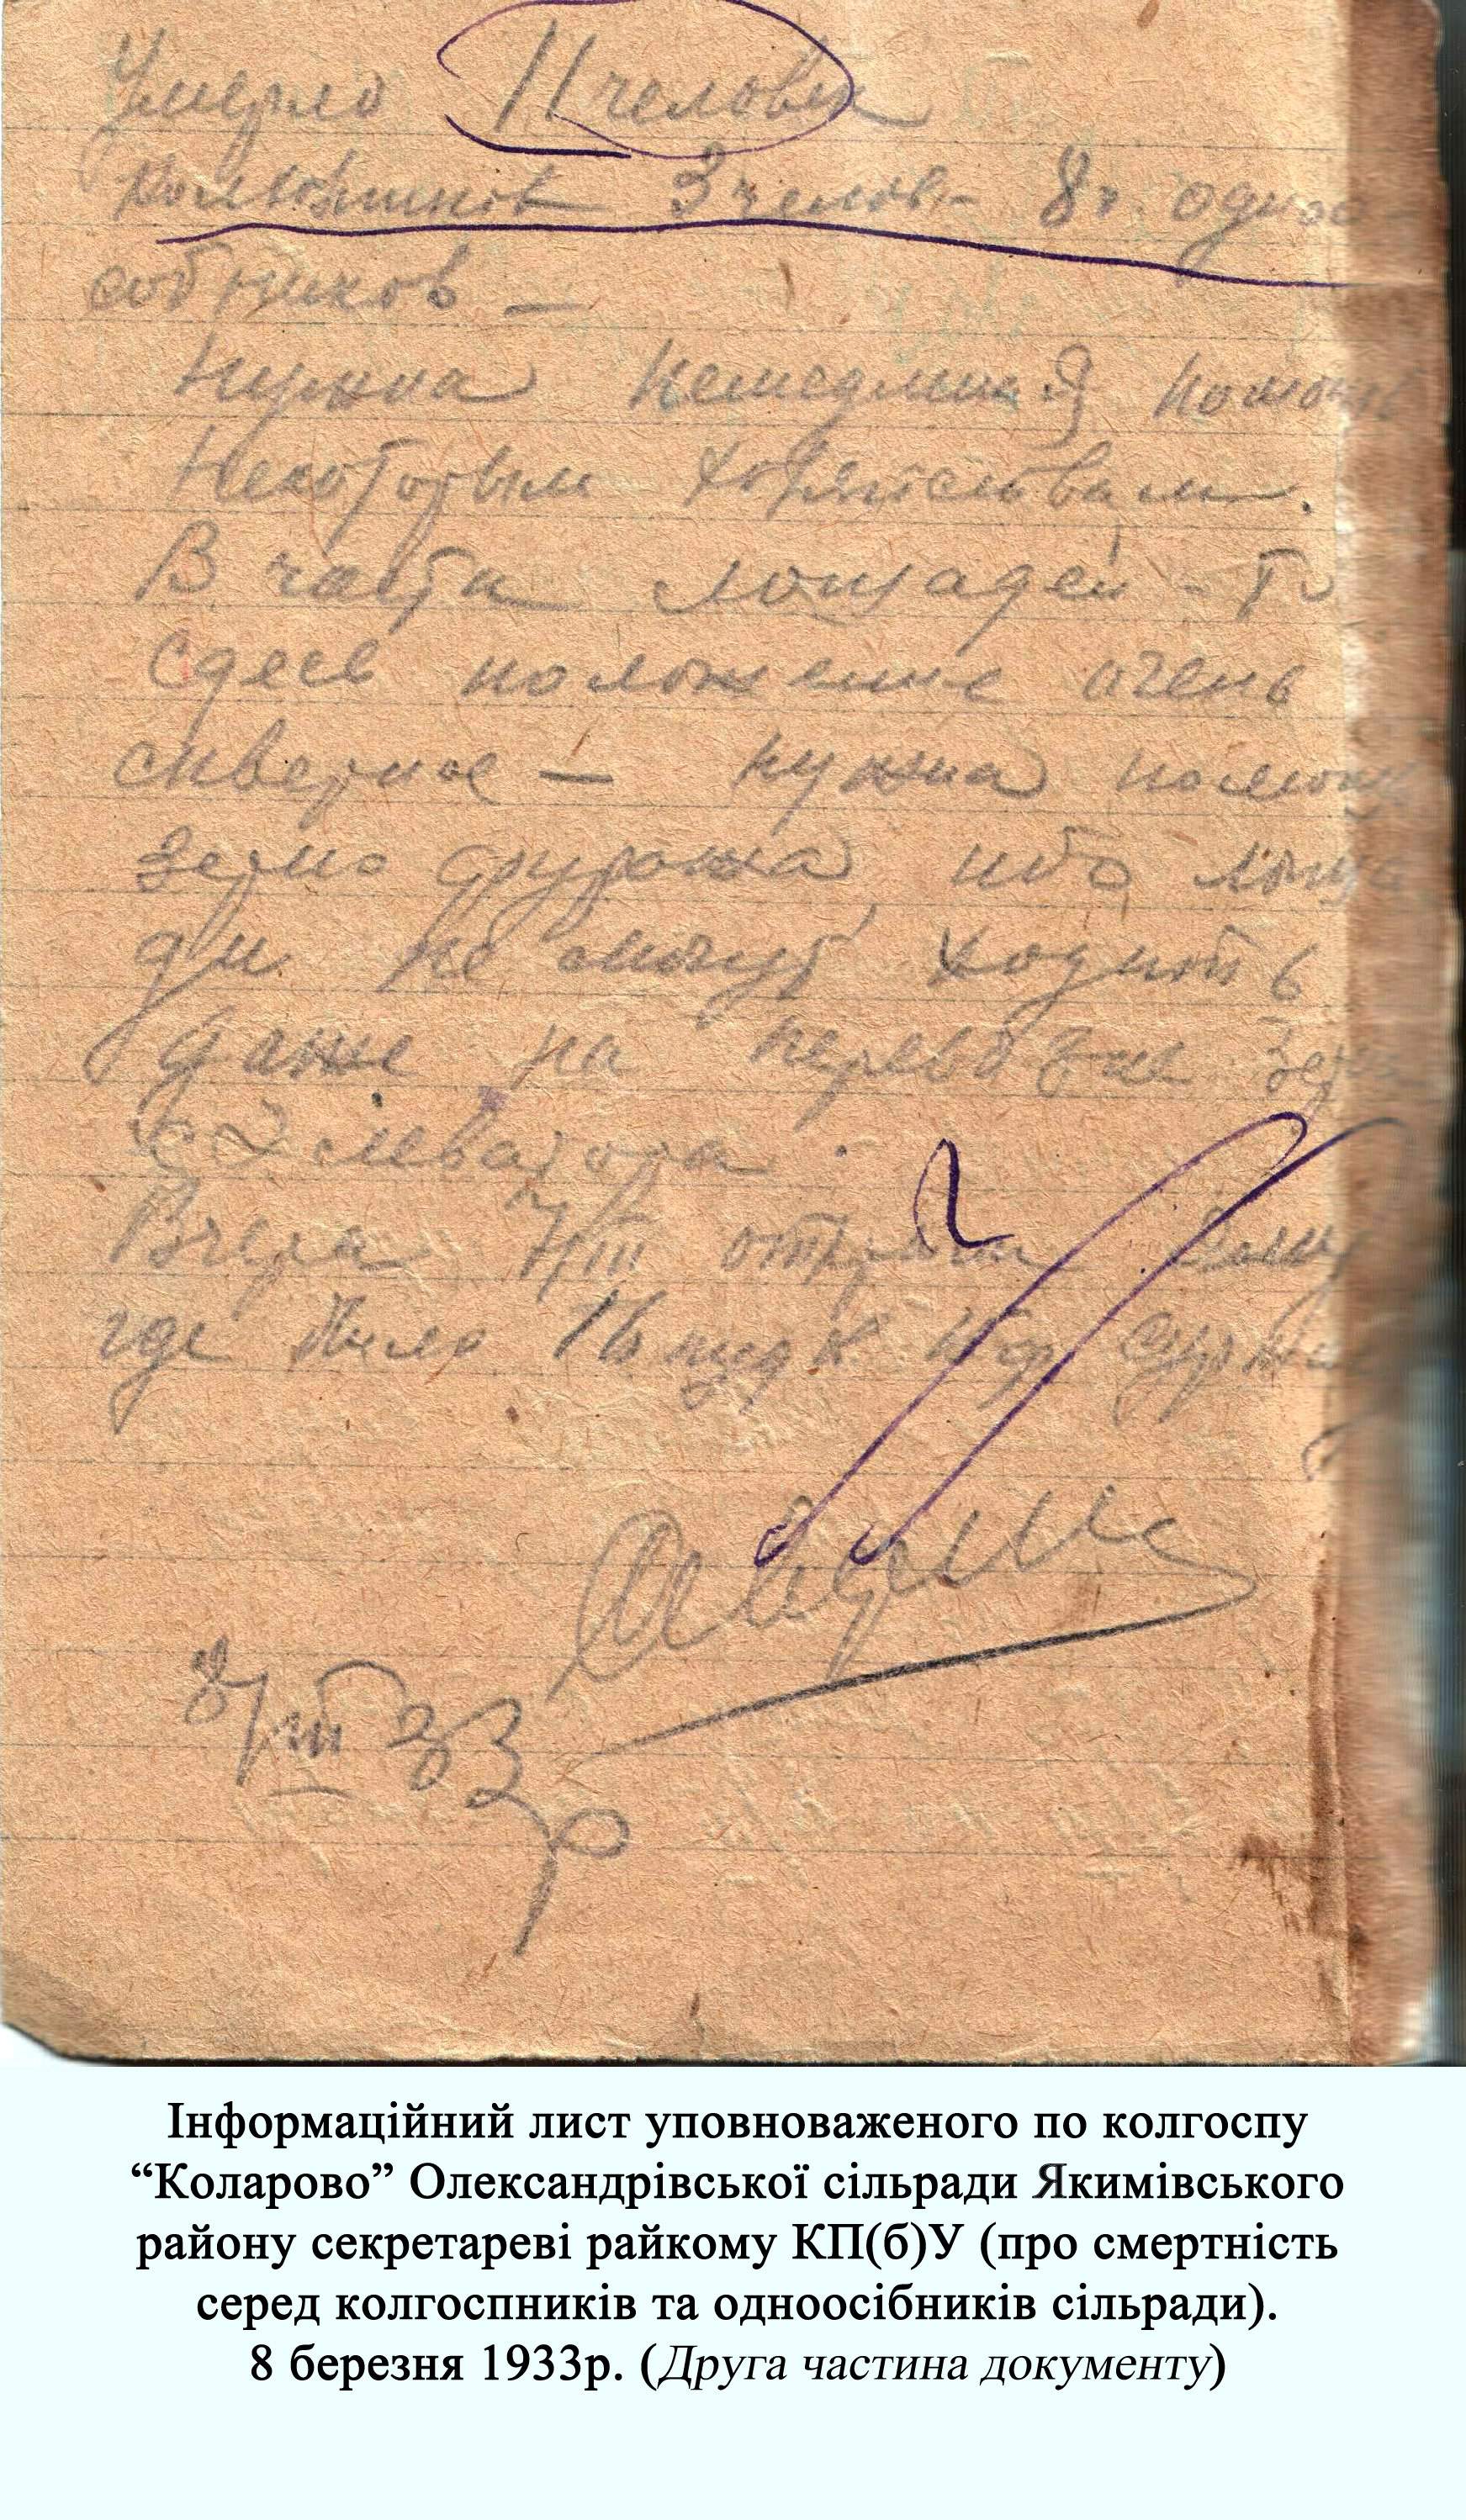 Умерло 11 человек
колхозников 3 челов. - 8 одноо
собников —
Нужна немедленная помощь
Некоторым хозяйствам.
В части лошадей - то
сдесь положение очень
скверное — нужна помощь
зерно фуража, ибо лоша
ди не смогут ходить
даже на перевозке зерна
с Элеватора.
Вчера 7/III
где было 16
8/III 33 р
Інформаційний лист уповноваженого по колгоспу
“Коларово” Олександрівської сільради Якимівського
району секретареві райкому КП(б)У (про смертність
серед колгоспників та одноосібників сільради).
8 березня 1933р. (Друга частина документу)